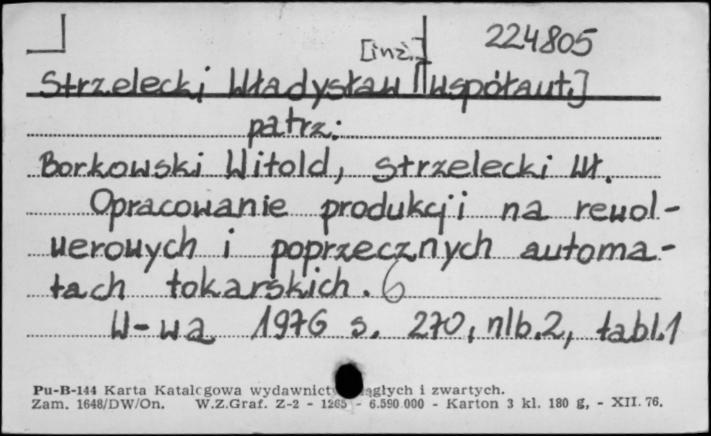 [inż.] 224805
Strzelecki Władysław [współaut.]
patrz:
Borkowski Witold, Strzelecki Wł.
Opracowanie produkcji na rewol-
werowych i poprzecznych automa-
tach tokarskich. 6
W-wa 1976 s. 270, nlb. 2, tabl. 1
Pu-B-144 Karta Katalogowa wydawnict ągłych i zwartych.
Zam. 1648/DW/On. W.Z.Graf. Z-2 - 1265 - 6.590.000 - Karton 3 kl. 180 g, - XII. 76.